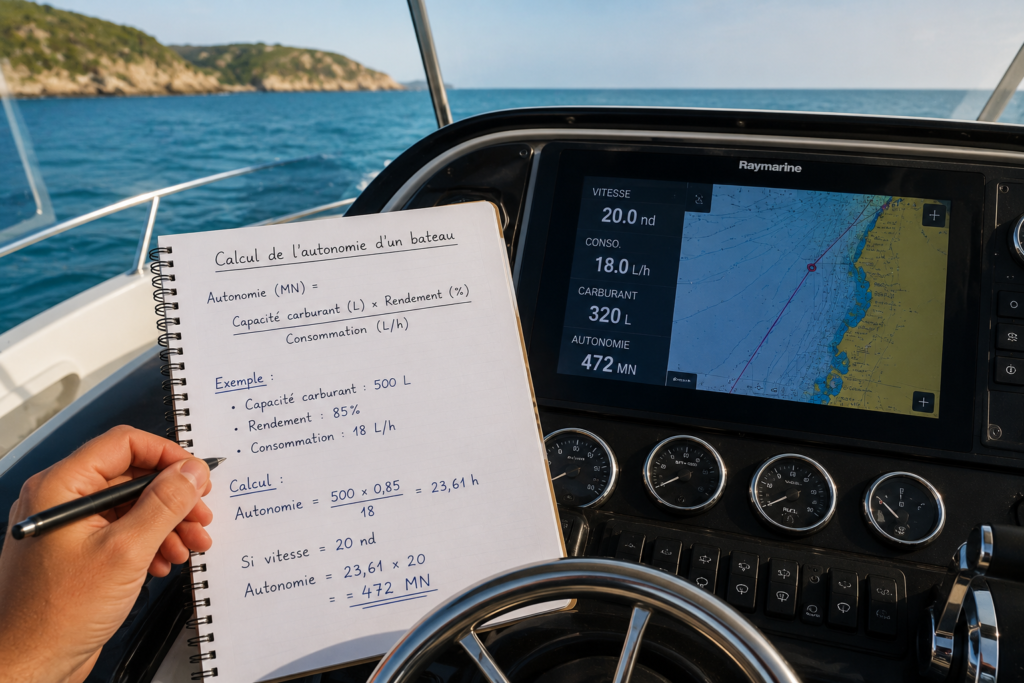 Calcul de l'autonomie d'un bateau
Autonomie (MN) =
Capacité carburant (L) x Rendement (%)
Consommation (L/h)
Exemple :
• Capacité carburant : 500 L
• Rendement : 85%
• Consommation : 18 L/h
Calcul :
Autonomie = 500 x 0,85 = 23,61 h
18
Si vitesse = 20 nd
Autonomie = 23,61 x 20
= = 472 MN
Raymarine
VITESSE
20.0 nd
CONSO.
18.0 L/h
CARBURANT
320 L
AUTONOMIE
472 MN